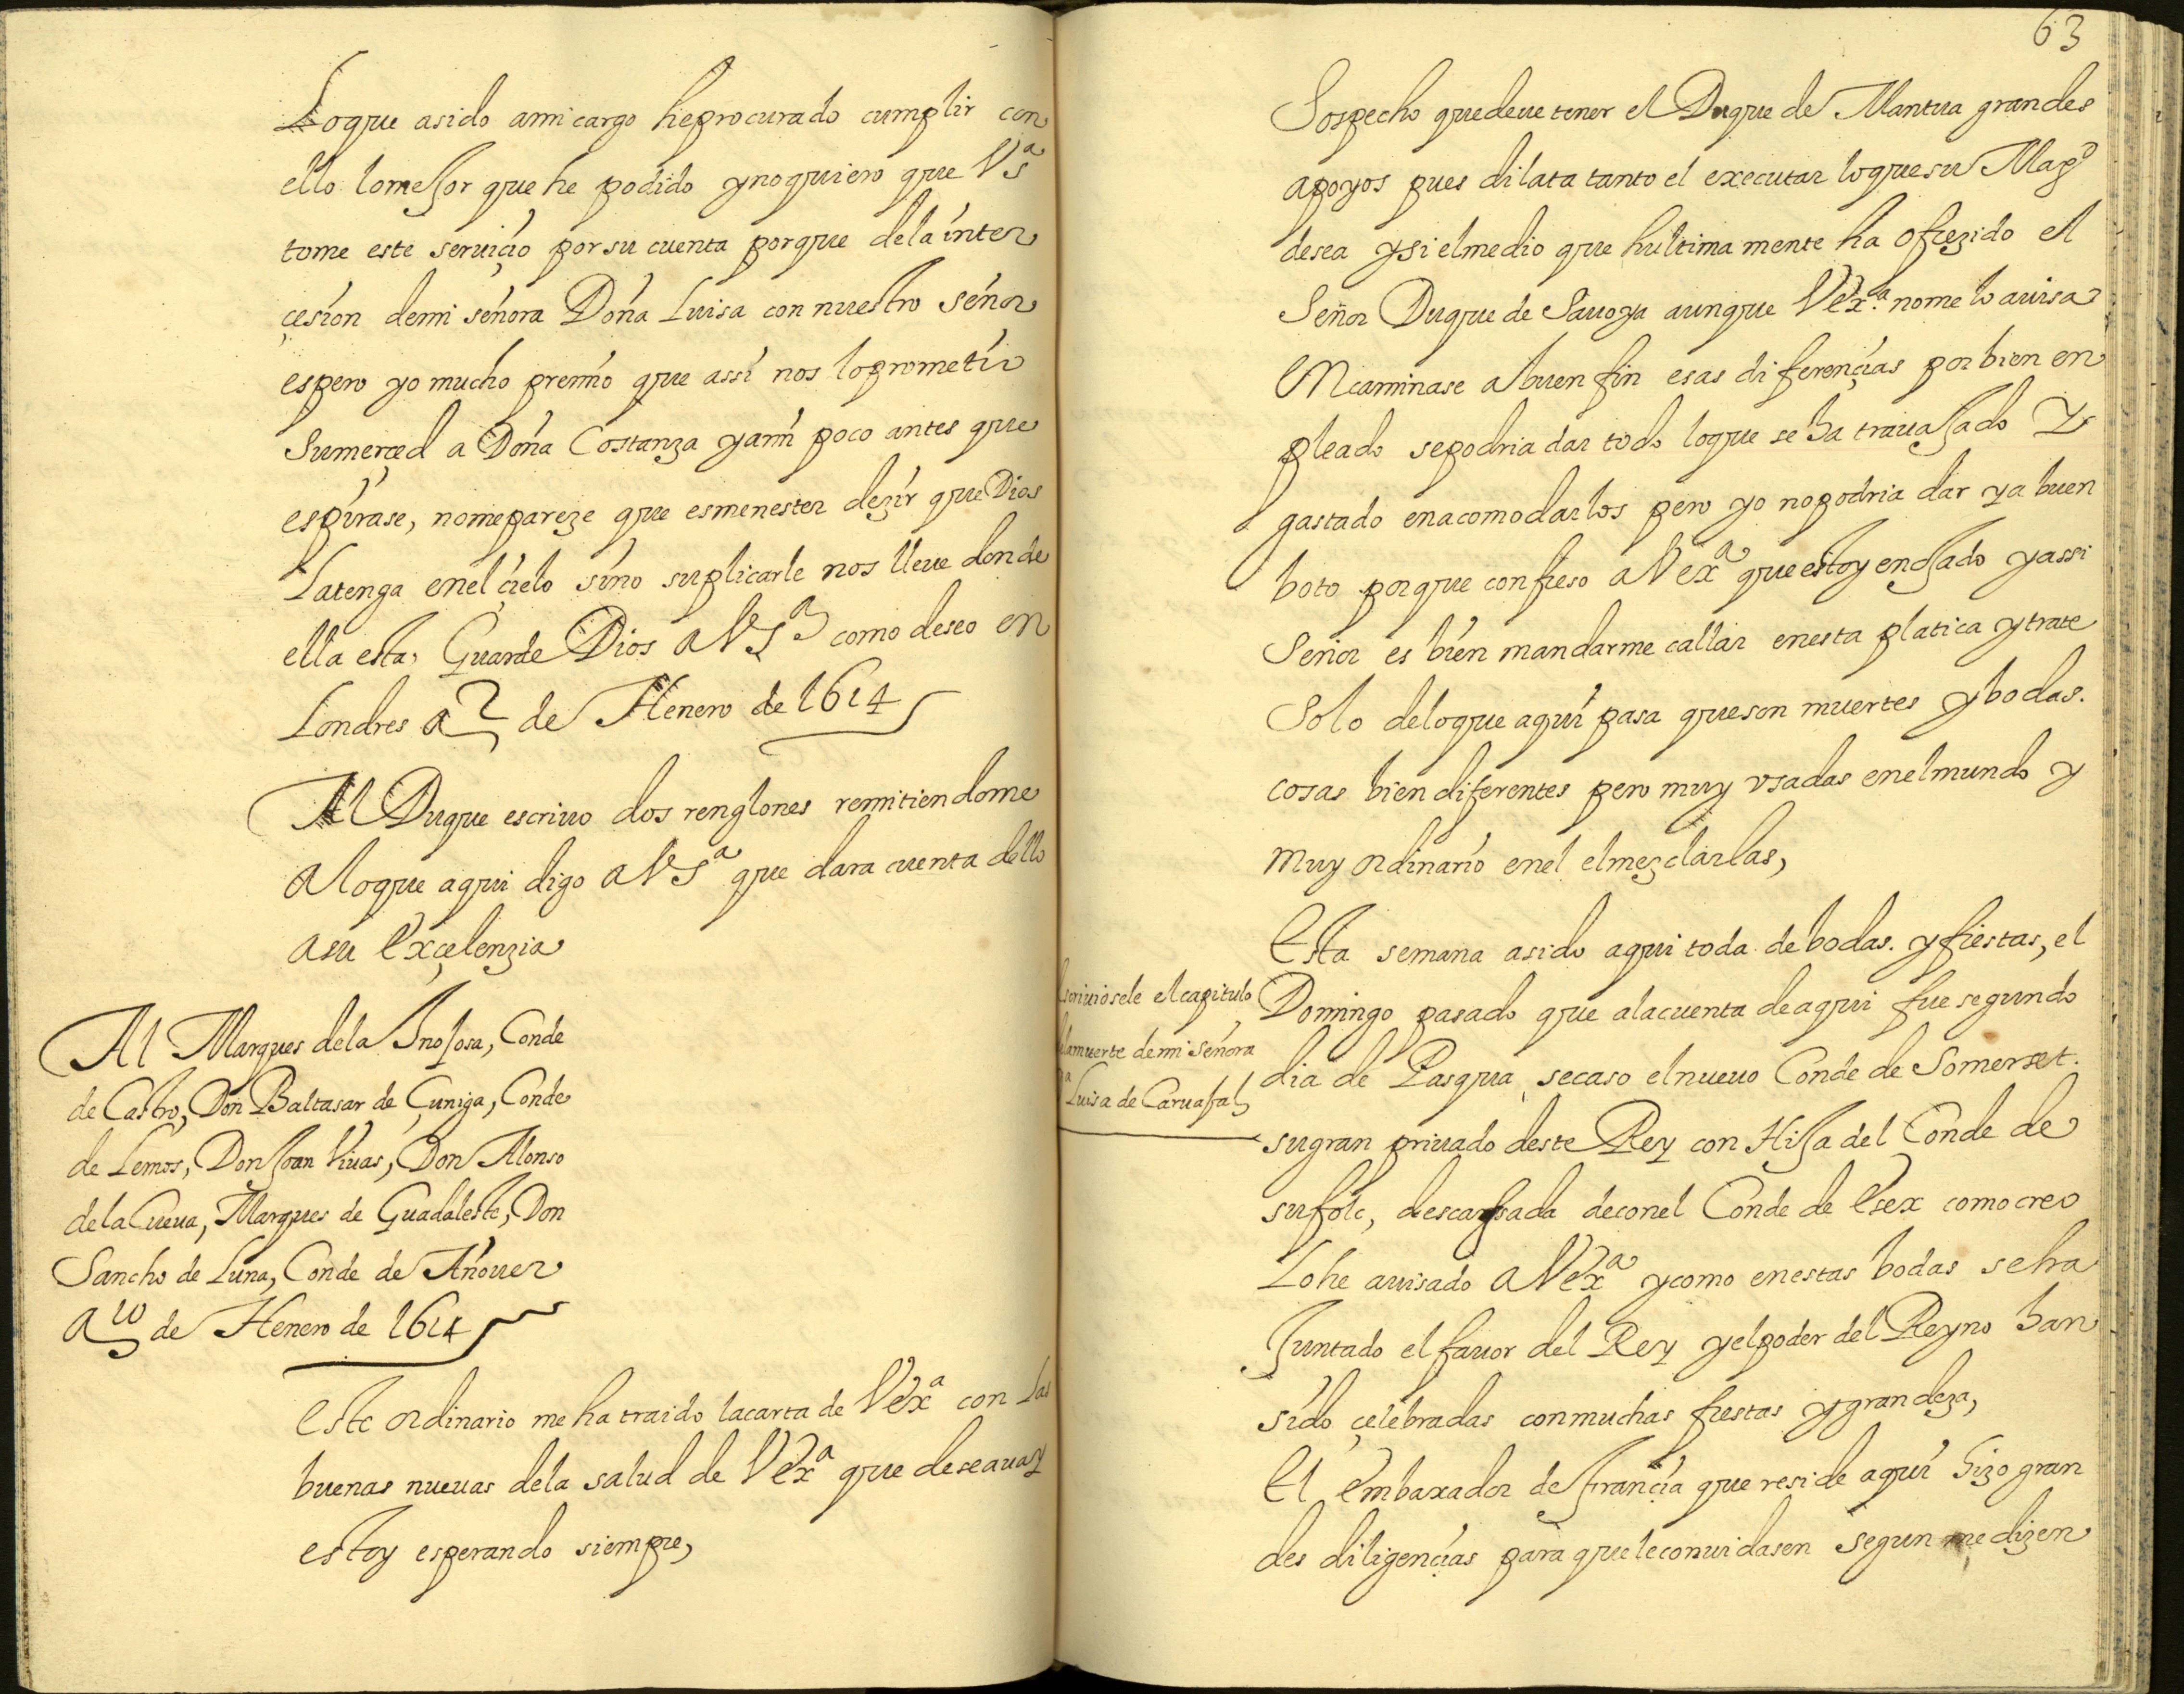 Loque asido ami cargo heprocurado cumplir con
ello lomeJor que he podido ynoquiero que VSª
tome este seruiçio por su cuenta porque dela inter
çesion demi señora Doña Luisa con nuestro señor
espero yo mucho premio que assi nos loprometio
Sumerçed a Doña Costanza yami poco antes que
espirase, nomepareze que esmenester dezir que Dios
Latenga enel çielo sino suplicarle nos lleue donde
ella esta, Guarde Dios a VSª como deseo en
Londres a 2 de Henero de 1614
Al Duque escriuo dos renglones remitiendome
Aloque aqui digo a VSª que dara cuenta dello
asu Exçelenzia
Al Marques dela InoJosa, Conde
de Castro, Don Baltasar de Çuniga, Conde
de Lemos, Don Joan Viuas, Don Alonso
dela Cueua, Marques de Guadaleste, Don
Sancho de Luna, Conde de Añouer
a 10 de Henero de 1614
Este ordinario me ha traido lacarta de VExª con Las
buenas nueuas dela salud de VExª que deseaua y
estoy esperando siempre,
63
Sospecho quedeue tener el Duque de Mantua grandes
apoyos pues dilata tanto el executar loquesu Magd
desea ysi elmedio que hultima mente ha ofrezido el
Señor Duque de Sauoya aunque VExª nome lo auisa
Encaminase abuen fin esas diferençias por bien en
pleado sepodria dar todo loque se ha trauaJado Y
gastado enacomodarlos pero yo nopodria dar ya buen
boto porque confieso a VExª que estoy enoJado yassi
Señor es bien mandarme callar enesta platica ytrate
Solo deloque aqui pasa queson muertes ybodas.
cosas bien diferentes pero muy vsadas enelmundo y
muy ordinario enel elmezclarlas,
Esta semana asido aqui toda de bodas. yfiestas, el
Escriuiosele el capitulo
dela muerte de mi señora
Dª Luisa de CaruaJal
Domingo pasado que alacuenta deaqui fue segundo
dia de Pasqua secaso elnueuo Conde de Somerset.
sugran priuado deste Rey con HiJa del Conde de
sufolc, descassada deconel Conde de Esex como creo
Lohe auisado a VExª ycomo enestas bodas seha
Juntado el fauor del Rey yelpoder del Reyno han
sido çelebradas conmuchas fiestas ygrandeza,
El Embaxador de françia que reside aqui hizo gran
des diligençias para queleconuidasen segun me dizen